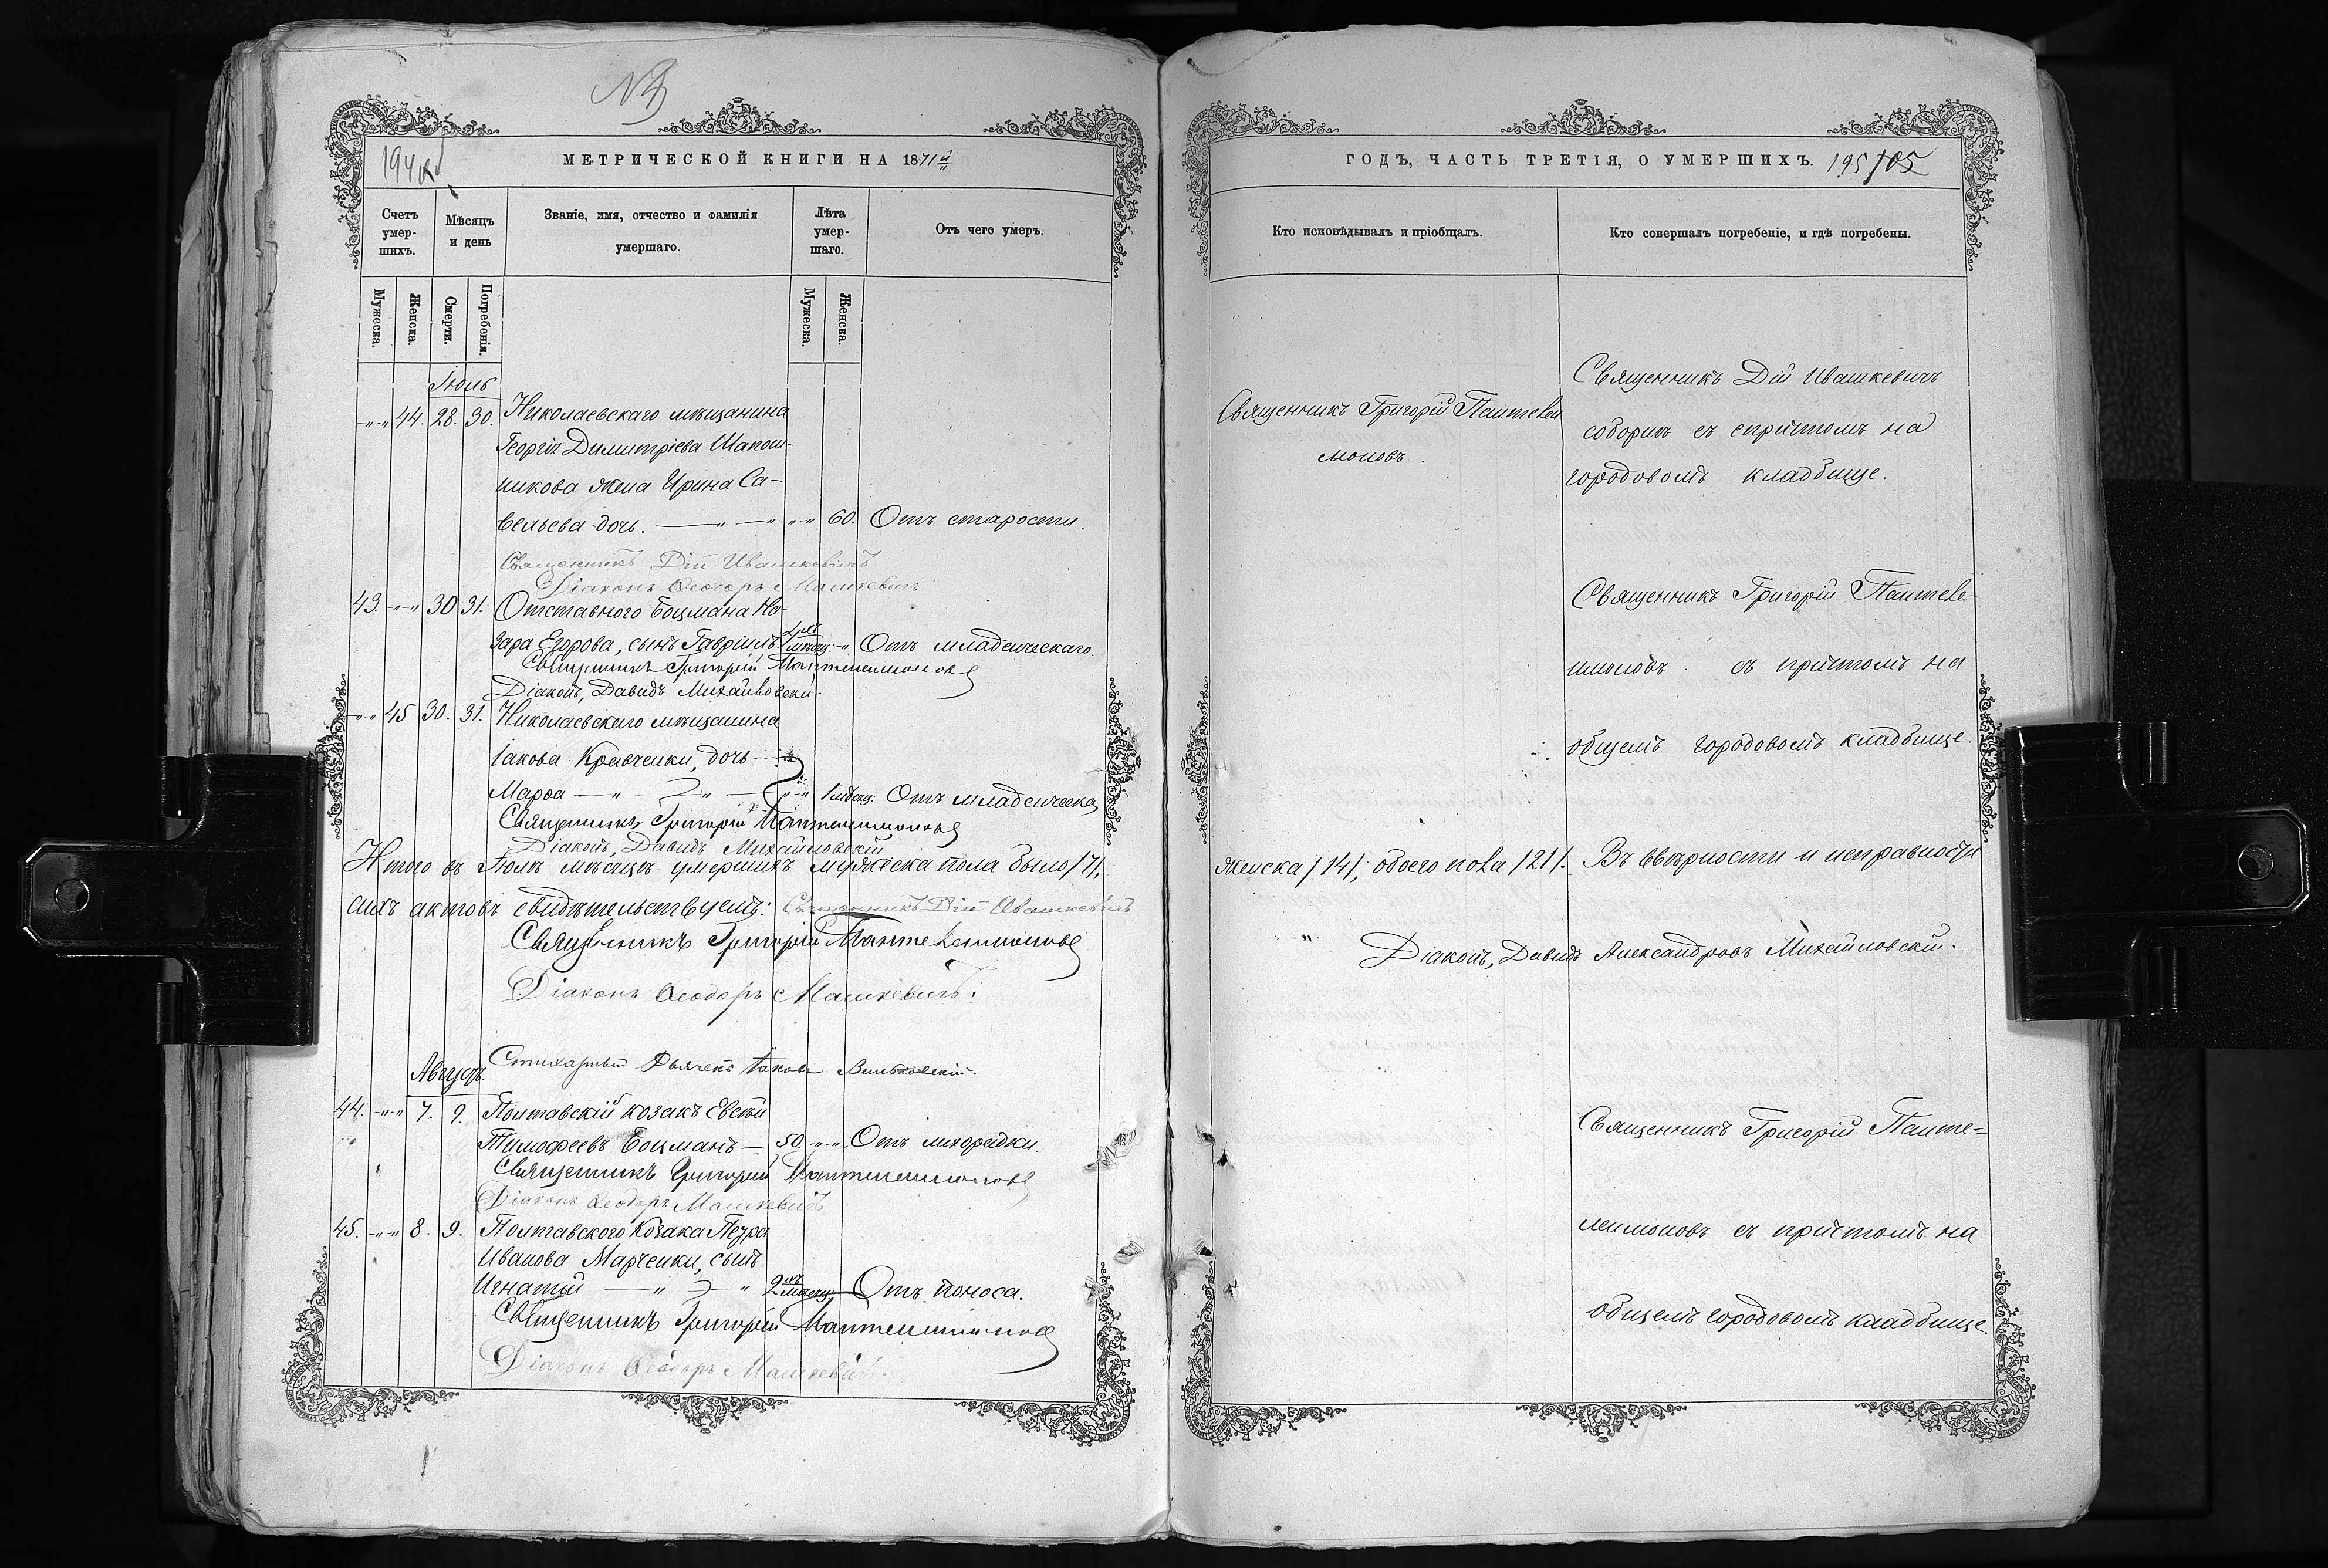 МЕТРИЧЕСКОЙ КНИГИ НА 1871й
Счетъ умершихъ.
Мѣсяцъ и день
Званіе, имя, отчество и фамилія умершаго.
Лѣта умершаго.
Отъ чего умеръ.
Мужеска.
Женска.
Смерти.
Погребенія.
Мужеска.
Женска.
Іюль
44. 28. 30. Николаевскаго мѣщанина
Георгія Димитріева Шапош-
никова жена Ирина Са-
вельева дочь. 60. Отъ старости.
Священникъ Дій Ивашкевичъ
Діаконъ Ѳеодоръ Машкевичъ
43. 30 31. Отставного Боцмана На-
зара Егорова, сынъ Гавріилъ Отъ младенческаго.
Священникъ Григорій Пантелеимоновъ
Діаконъ, Давидъ Михайловскій.
45 30. 31. Николаевскаго мѣщанина
Іакова Кравченки, дочь
Марѳа 1 мѣсяц: Отъ младенческа
Священникъ Григорій Пантелеимоновъ
Діаконъ, Давидъ Михайловскій
Итого въ Іюлѣ мѣсяцѣ умершихъ мужеска пола было /7/,
сихъ актовъ свидѣтельствуемъ: Священникъ Дій Ивашкевичъ
Священникъ Григорій Пантелеимоновъ
Діаконъ Ѳеодоръ Машкевичъ.
Стихарный Дьячекъ Іаковъ Вильковскій.
Августъ.
44. 7. 9. Полтавскій козакъ Евсѣй
Тимофеевъ Боцманъ 50. Отъ лихорадки.
Священникъ Григорій Пантелеимоновъ
Діаконъ Ѳеодоръ Машкевичъ
45. 8. 9. Полтавского Козака Петра
Иванова Марченки, сынъ
Игнатій Отъ поноса.
Священникъ Григорій Пантелеимоновъ
Діаконъ Ѳеодоръ Машкевичъ.
ГОДЪ, ЧАСТЬ ТРЕТІЯ, О УМЕРШИХЪ. 195 105
Кто исповѣдывалъ и пріобщалъ.
Кто совершалъ погребеніе, и гдѣ погребены.
Священникъ Григорій Пантелеи
моновъ.
Священникъ Дій Ивашкевичъ
соборнѣ съ причтомъ на
городовомъ кладбище.
Священникъ Григорій Пантеле-
имоновъ съ причтомъ на
общемъ городовомъ кладбище.
женска /14/, обоего пола /21/. Въ вѣрности и исправности
Діаконъ, Давидъ Александровъ Михайловскій.
Священникъ Григорій Панте-
леимоновъ съ причтомъ на
общемъ городовомъ кладбище.